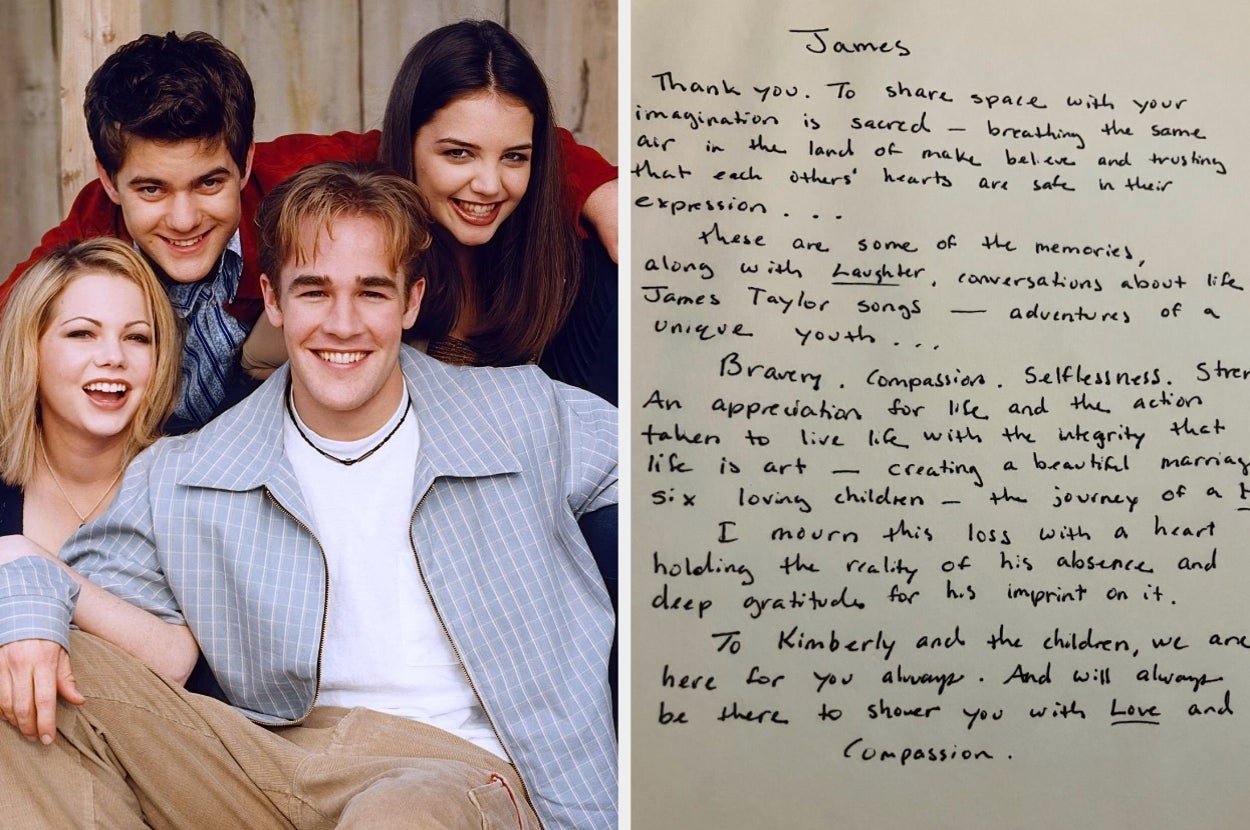 James
Thank you. To share space with your
imagination is sacred — breathing the same
air in the land of make believe and trusting
that each others' hearts are safe in their
expression . . .
these are some of the memories,
along with Laughter, conversations about life
James Taylor songs — adventures of a
unique youth . . .
Bravery. Compassion. Selflessness. Stren
An appreciation for life and the action
taken to live life with the integrity that
life is art — creating a beautiful marriag
six loving children — the journey of a
I mourn this loss with a heart
holding the reality of his absence and
deep gratitude for his imprint on it.
To Kimberly and the children, we are
here for you always. And will always
be there to shower you with Love and
Compassion.